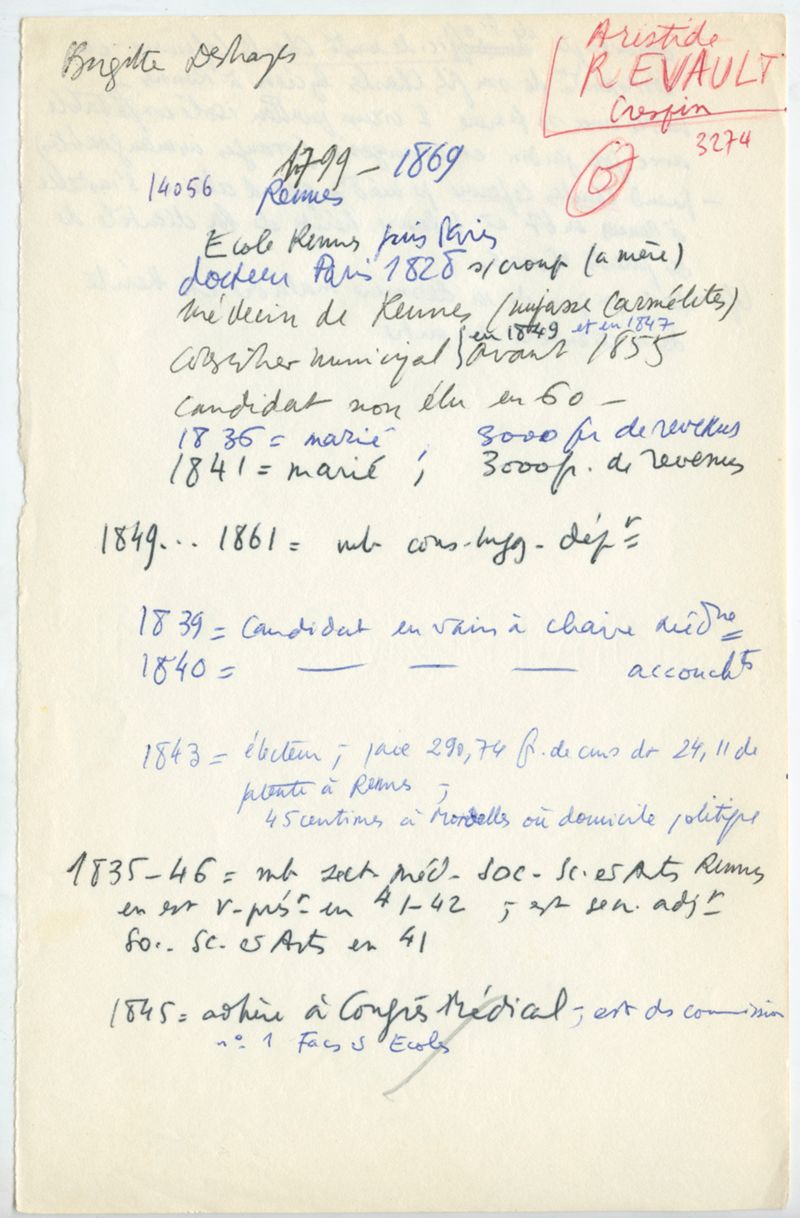 Brigitte Deshayes
Aristide
REVAULT
Crespin
3274
1799 - 1869
14056 Rennes
Ecole Rennes puis Paris
docteur Paris 1828 s/croup (a mère)
médecin de Rennes (impasse Carmélites)
en 1849 et en 1847
conseiller municipal avant 1855
candidat non élu en 60 -
1836 = marié ; 3000 fr de revenus
1841 = marié ; 3000 fr. de revenus
1849... 1861 = mb cons. hyg. dépr
1839 = candidat en vain à chaire médne
1840 = — — — accoucht
1843 = électeur ; paie 290,74 fr. de cens dt 24,11 de
patente à Rennes ;
45 centimes à Mordelles où domicile politique
1835-46 = mb sect. méd. Soc. Sc. et Arts Rennes
en est v-prést en 41-42 ; est secr. adjt
Soc. Sc. et Arts en 41
1845 = adhère à Congrès Médical ; est ds commission
n° 1 Facs et Ecoles